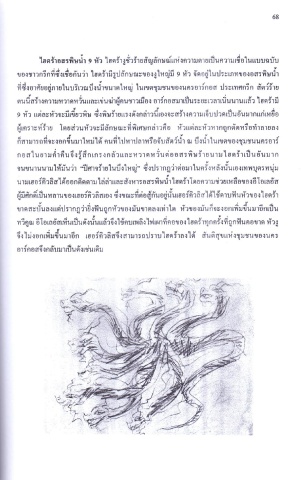 68
ไฮดร้าอสรพิษน้ำ 9 หัว ไฮดร้างูชั่วร้ายสัญลักษณ์แห่งความตายเป็นความเชื่อในแบบฉบับ
ของชาวกรีกที่ซึ่งเชื่อกันว่า ไฮดร้ามีรูปลักษณะของงูใหญ่มี 9 หัว จัดอยู่ในประเภทของอสรพิษน้ำ
ที่ซึ่งอาศัยอยู่ภายในบริเวณบึงน้ำขนาดใหญ่ ในเขตชุมชนของนครอาร์กอส ประเทศกรีก สัตว์ร้าย
ตนนี้สร้างความหวาดหวั่นและเข่นฆ่าผู้คนชาวเมือง อาร์กอสมาเป็นระยะเวลาเนิ่นนานแล้ว ไฮดร้ามี
9 หัว แต่ละหัวจะมีเขี้ยวพิษ ซึ่งพิษร้ายแรงดังกล่าวนี้เองจะสร้างความเจ็บปวดเป็นอันมากแก่เหยื่อ
ผู้เคราะห์ร้าย โดยส่วนหัวจะมีลักษณะที่พิเศษกล่าวคือ หัวแต่ละหัวหากถูกตัดหรือทำลายลง
ก็สามารถที่จะงอกขึ้นมาใหม่ได้ คนที่ไปหาปลาหรือจับสัตว์น้ำ ณ บึงน้ำในเขตชุมชนของนครอาร์
กอสในยามค่ำคืนจึงรู้สึกเกรงกลัวและหวาดหวั่นต่ออสรพิษร้ายนามไฮดร้าเป็นอันมาก
จนขนานนามให้มันว่า “ปีศาจร้ายในบึงใหญ่” ซึ่งปรากฏว่าต่อมาในครั้งหลังนั้นเองเทพบุตรหนุ่ม
นามเฮอร์คิวลิสได้ออกติดตามไล่ล่าและสังหารอสรพิษน้ำไฮดร้าโดยความช่วยเหลือของอีโอเลอัส
ผู้มีศักดิ์เป็นหลานของเฮอร์คิวลิสเอง ซึ่งขณะที่ต่อสู้กันอยู่นั้นเฮอร์คิวลิสได้ใช้ดาบฟันหัวของไฮดร้า
ขาดสะบั้นลงแต่ปรากฏว่ายิ่งฟันถูกหัวของมันขาดลงเท่าใด หัวของมันก็จะงอกเพิ่มขึ้นมาอีกเป็น
ทวีคูณ อีโอเลอัสเห็นเป็นดังนั้นแล้วจึงใช้คบเพลิงไฟเผาที่คอของไฮดร้าทุกครั้งที่ถูกฟันคอขาด หัวงู
จึงไม่งอกเพิ่มขึ้นมาอีก เฮอร์คิวลิสจึงสามารถปราบไฮดร้าลงได้ สันติสุขแห่งชุมชนของนคร
อาร์กอสจึงกลับมาเป็นดังเช่นเดิม